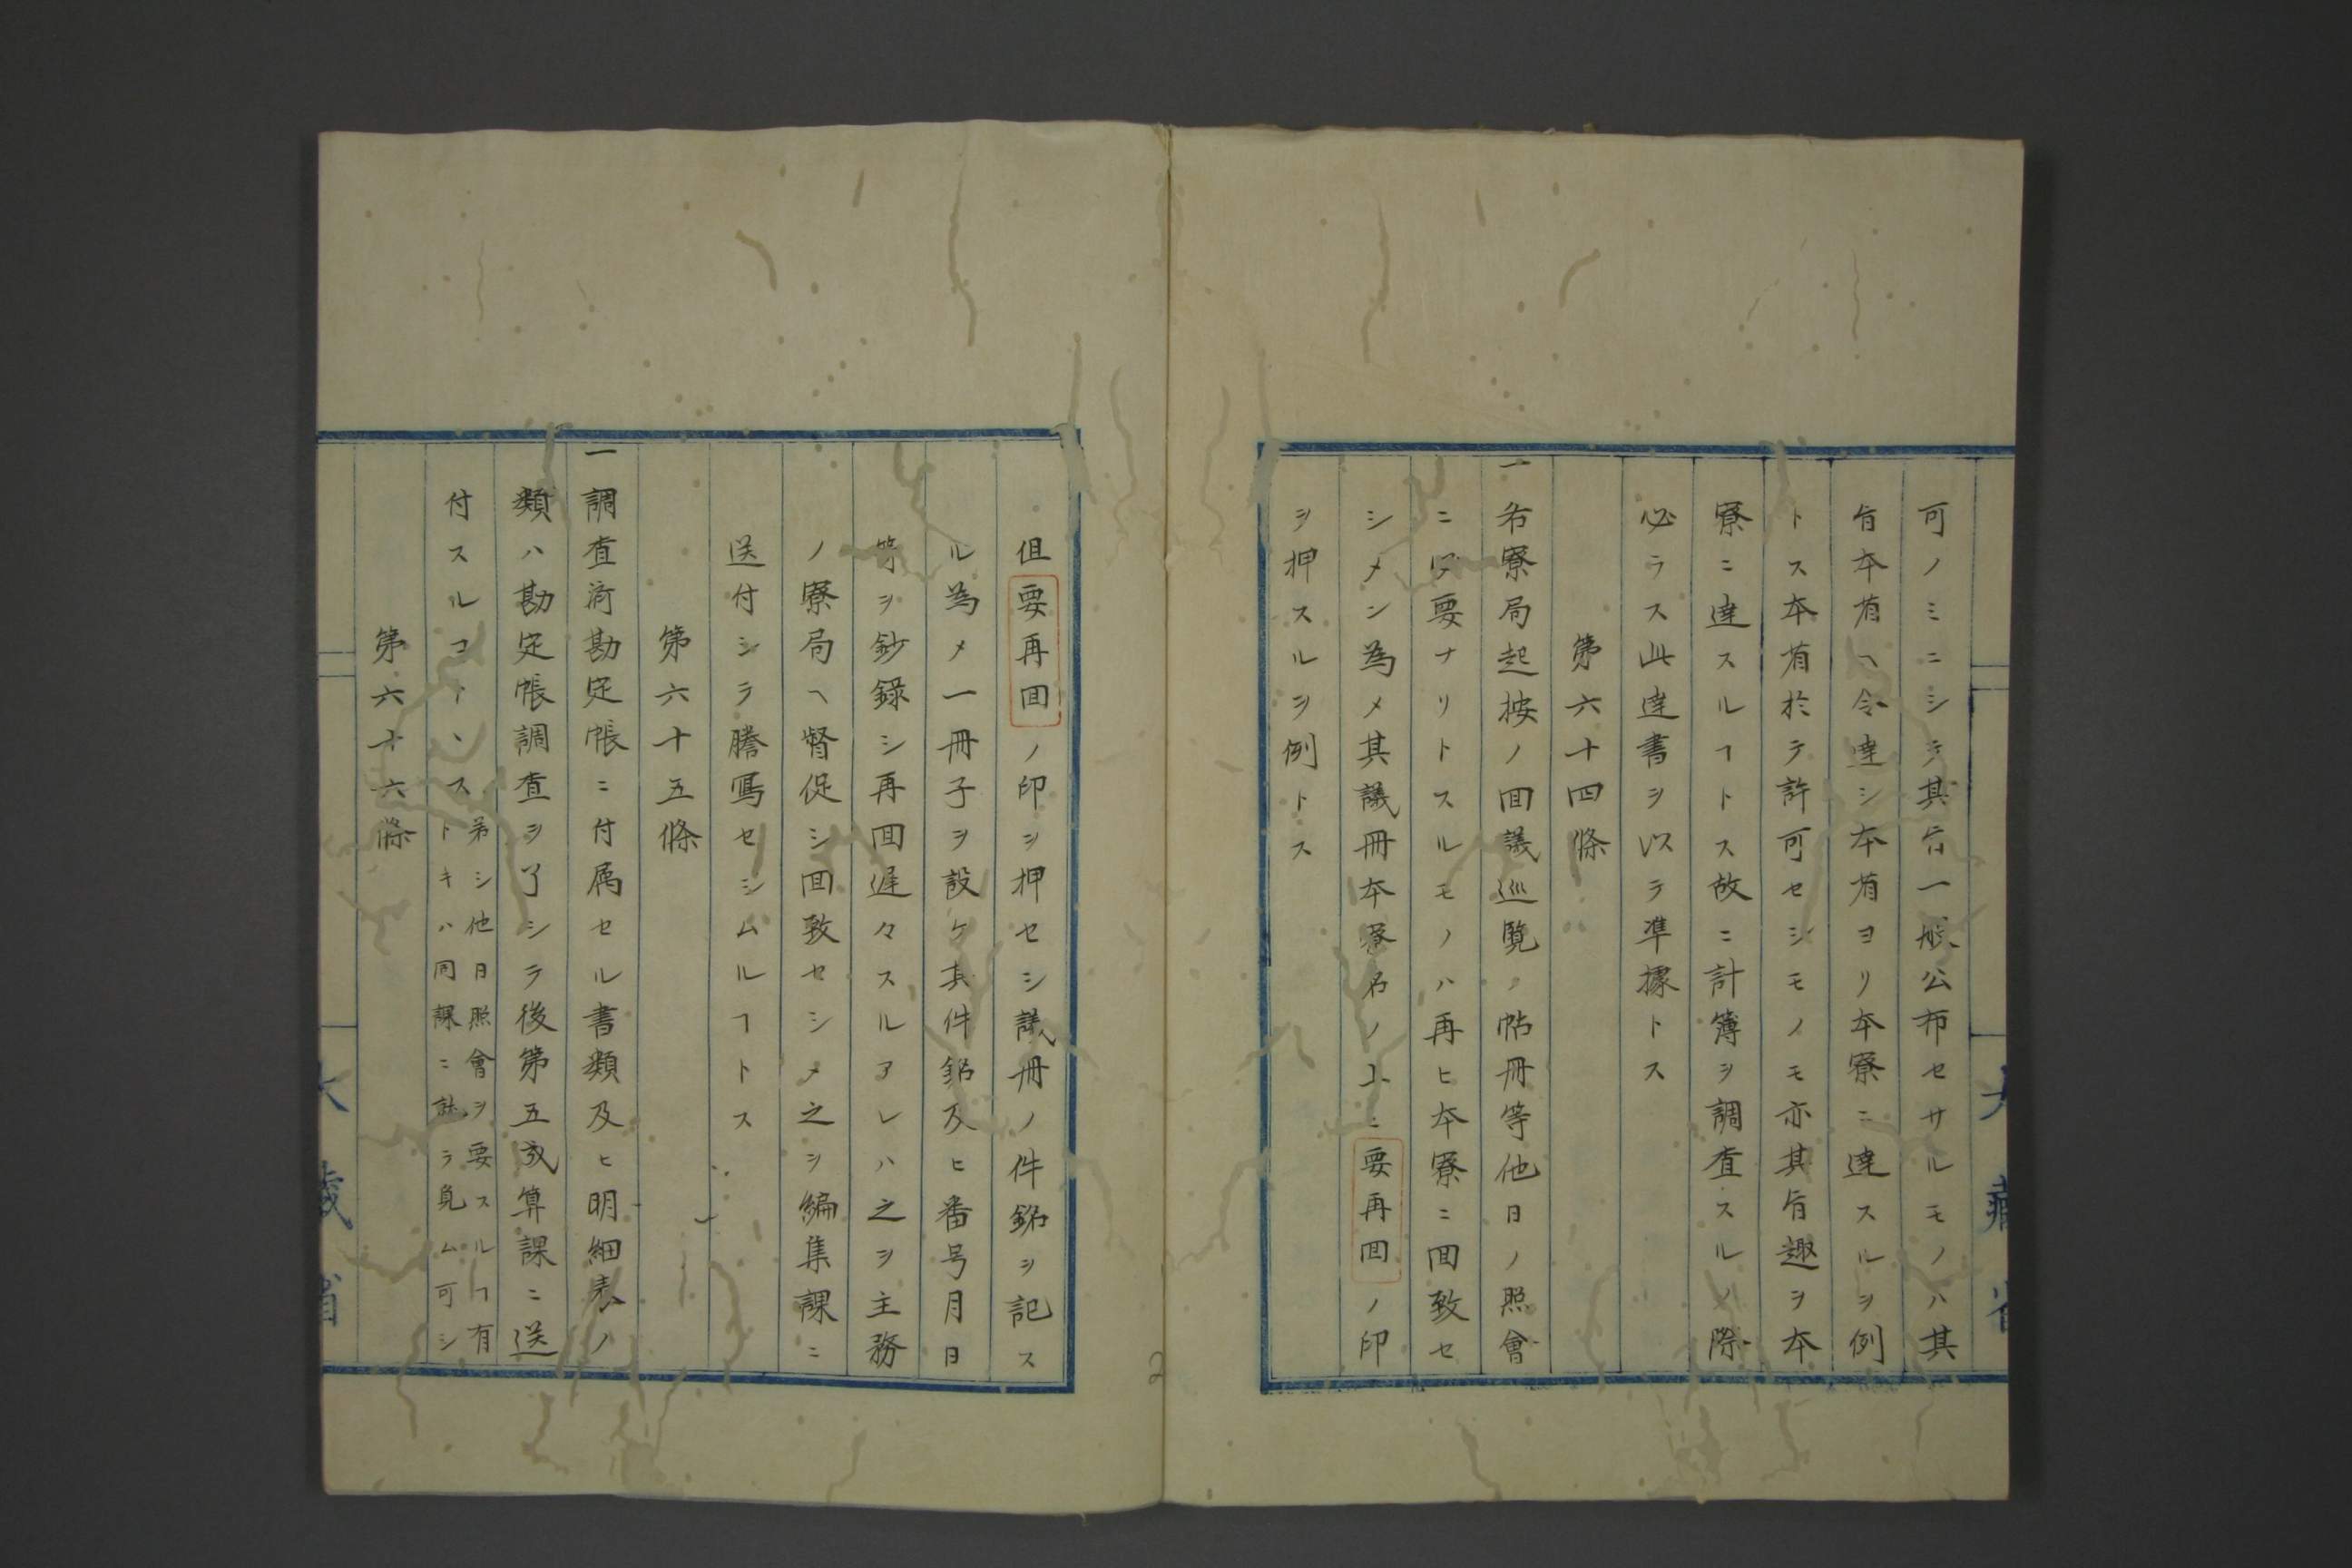 可ノミニシテ其旨一般公布セサルモノハ其
旨本省ヘ令達シ本省ヨリ本寮ニ達スルヲ例
トス本省於テ許可セシモノモ亦其旨趣ヲ本
寮ニ達スルヿトス故ニ計簿ヲ調査スルノ際
必ラス此達書ヲ以テ準據トス
第六十四條
一各寮局起按ノ回議巡覧ノ帖冊等他日ノ照會
ニ必要ナリトスルモノハ再ヒ本寮ニ回致セ
シメン為メ其議冊本寮名ノ上ニ要再回ノ印
ヲ押スルヲ例トス
但要再回ノ印ヲ押セシ議冊ノ件銘ヲ記ス
ル為メ一冊子ヲ設ケ其件銘及ヒ番号月日
等ヲ鈔録シ再回遅々スルアレハ之ヲ主務
ノ寮局ヘ督促シ回致セシメ之ヲ編集課ニ
送付シテ謄寫セシムルヿトス
第六十五條
一調査済勘定帳ニ付属セル書類及ヒ明細表ノ
類ハ勘定帳調査ヲ了シテ後第五設算課ニ送
付スルコトヽス
若シ他日照會ヲ要スルヿ有
トキハ同課ニ就テ見ム可シ
第六十六條
大藏省
大藏省
2